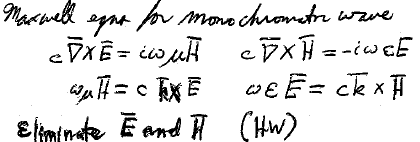 Maxwell eqns for monochromatic wave
c ∇̅ × E̅ = iωμH̅    c ∇̅ × H̅ = -iωεE̅
ωμH̅ = c k̅ × E̅    ωε E̅ = -c k̅ × H̅
Eliminate E̅ and H̅ (HW)